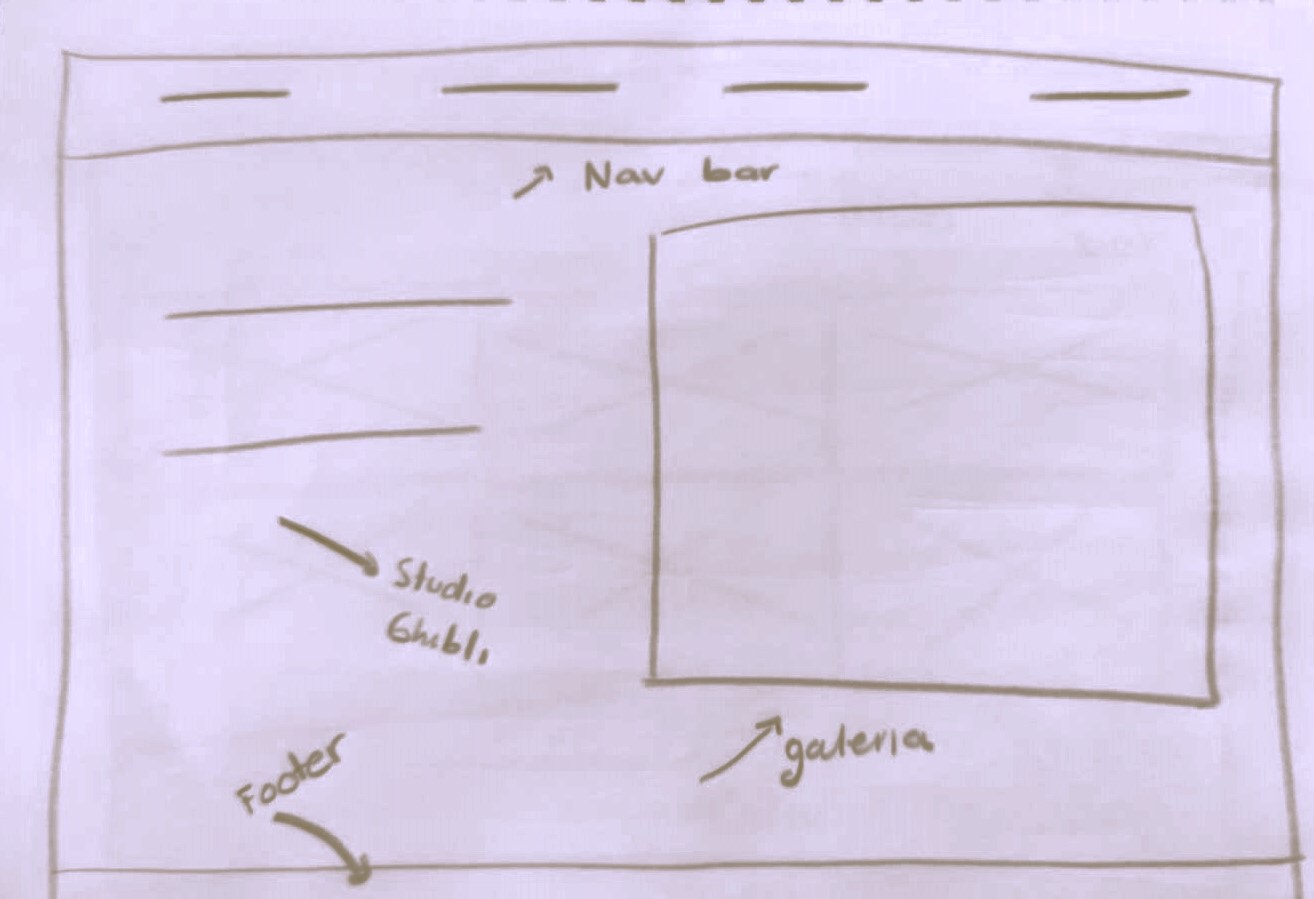 Nav bar
Studio
Ghibli
galeria
Footer